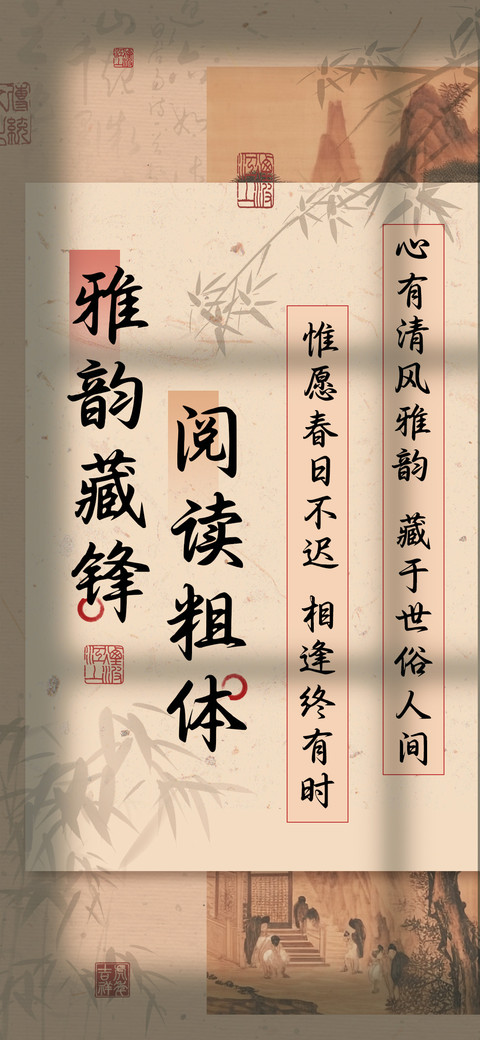 雅韵藏锋
阅读粗体
惟愿春日不迟 相逢终有时
心有清风雅韵 藏于世俗人间
傳統
吉祥